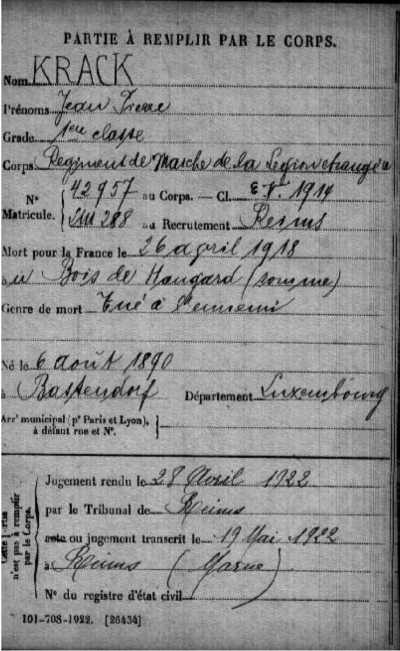 PARTIE À REMPLIR PAR LE CORPS.
Nom KRACK
Prénoms Jean Pierre
Grade 1ère classe
Corps Régiment de Marche de la Légion étrangère
N° Matricule. { 42957 au Corps. — Cl. E. V. 1914
LM 288 au Recrutement Reims
Mort pour la France le 26 avril 1918
à au Bois de Hangard (somme)
Genre de mort Tué à l'ennemi
Né le 6 août 1890
à Bastendorf Département Luxembourg
Arrt municipal (pr Paris et Lyon), à défaut rue et N°. }
Cette partie n'est pas à remplir par le Corps.
Jugement rendu le 28 Avril 1922
par le Tribunal de Reims
acte ou jugement transcrit le 19 Mai 1922
à Reims (Marne)
N° du registre d'état civil
101-708-1922. [26434]